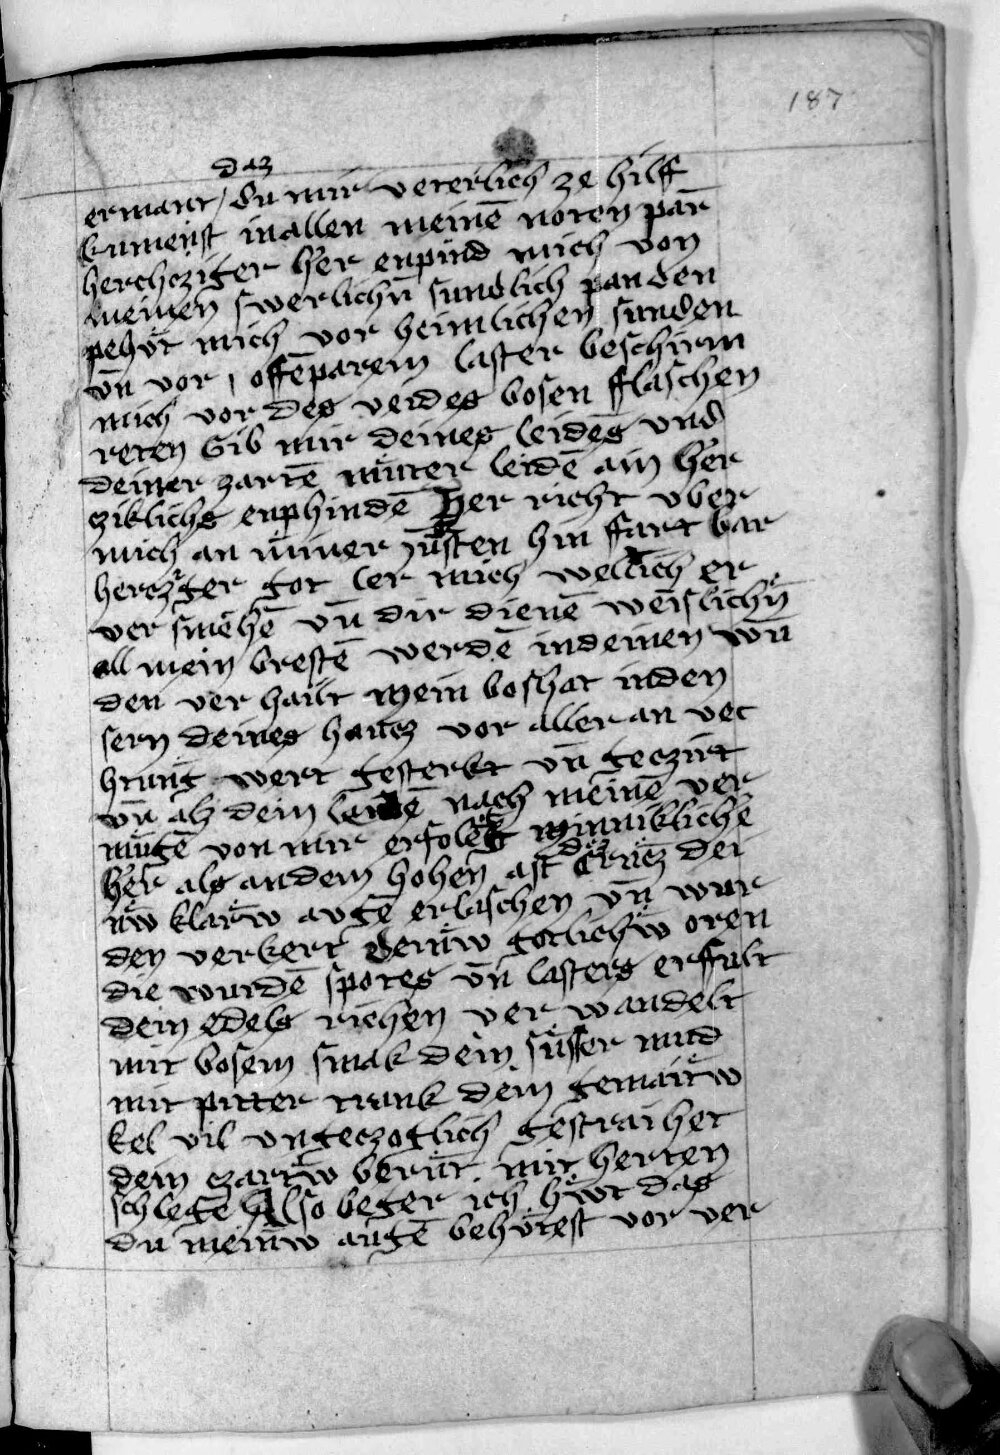 187
daz
ermant / du mir veterlich ze hilff
kumenst in allen meinē noten par̄
herchcziger her enpind mich von
meinen swerlichn̄ sundlich panden
pehüt mich vor heimlichen sunden
vn̄ vor / offēparem laster beschirm
mich vor des veides bosen fflaschen
reten Gib mir deines leidēs vnd
deiner zartē mũter leidē ain her
cziklichs enphindē Her richt vber
mich an miner jüsten hin ffart bar
herczger got ler mich wellich er
ver smehē vn̄ dir dienē weislichn̄
all mein brestē werdē in deinen wn̄
den ver hailt mein boshat in den
sern deines haucz vor aller an vec
htung wert gesterkt vn̄ geczirt
vn̄ alz dein leidē nach meinē ver
mügē von mir erfolgt Minnikliche
her als an dem hohen ast dez Crücz dei
nw̄ klarw̄ augē erlaschen vn̄ wur
den verkert deinw̄ gotlichw̄ oren
die wurdē spotes vn̄ lasters erffult
dein edels riehen ver wandelt
mit bosem smak dein süsser mud
mit pitter trank dein gemaitw
kel vil vngeczoglich gestraihet
dein czartw̄ berürt mit herten
schlege Also beger ich hw̄t das
du meinw̄ augē behütest vor ver